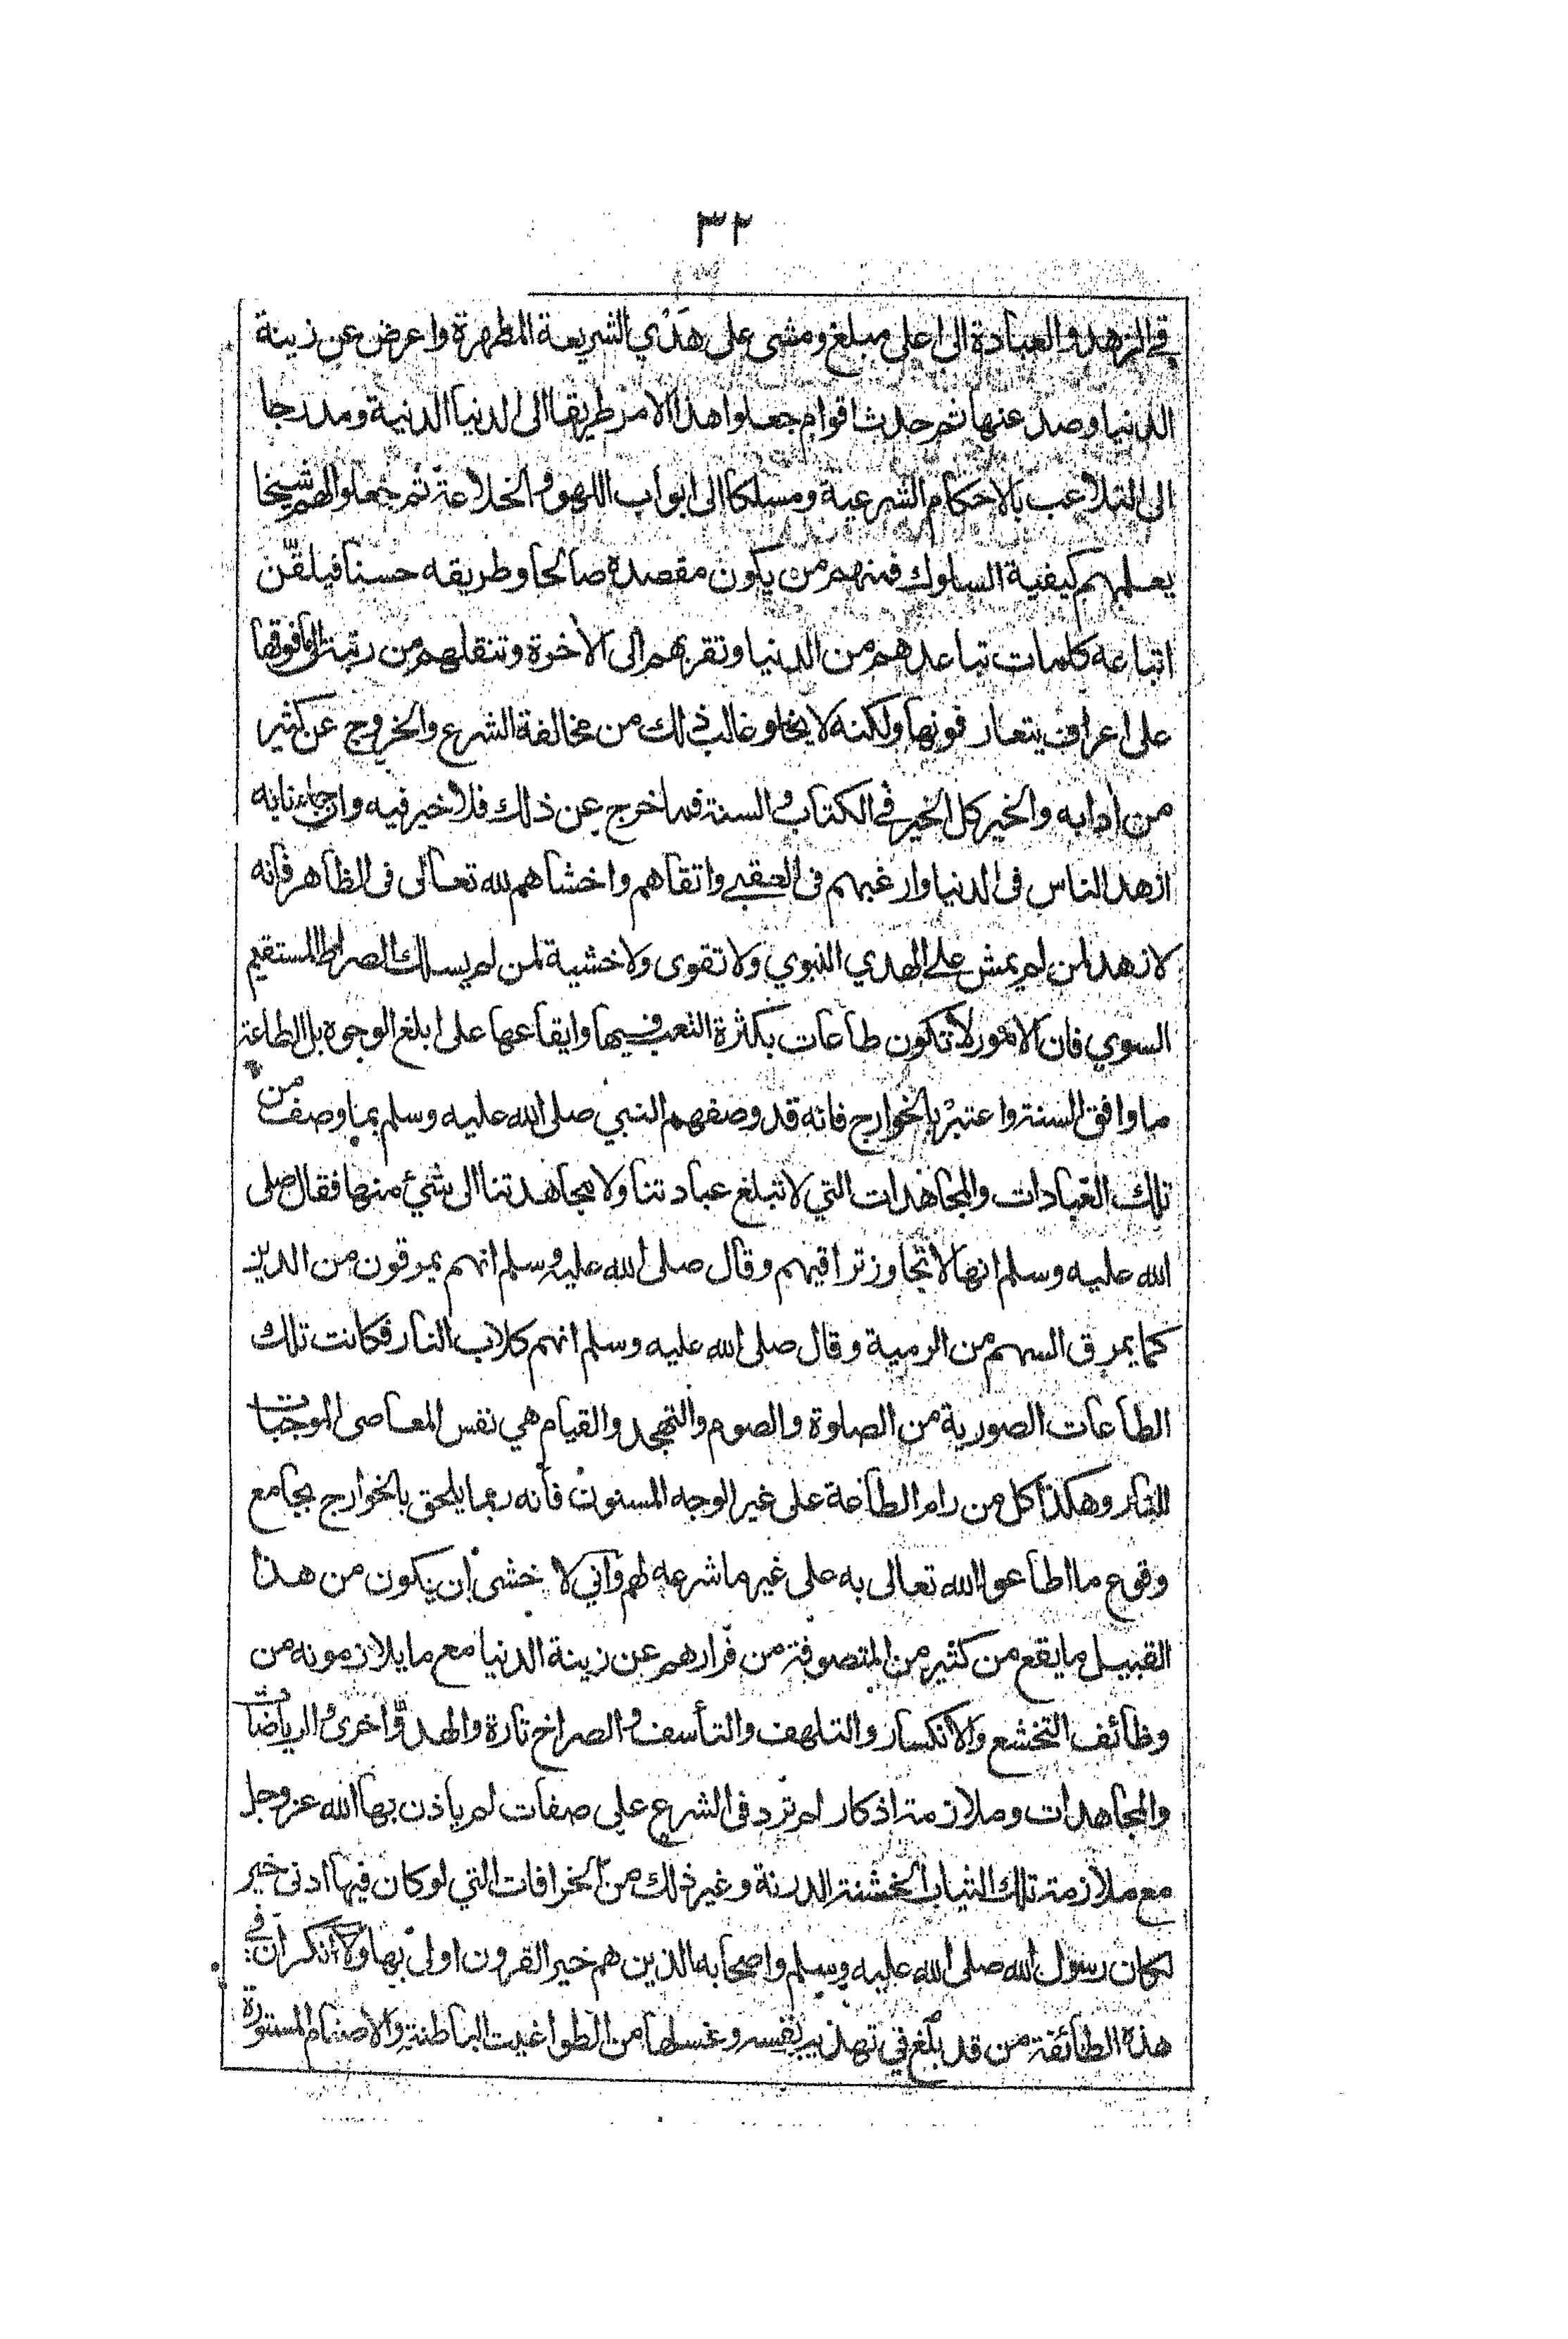 ٣٢
في الزهد والعبادة الى اعلى مبلغ ومشى على هَدْي الشريعة المطهرة واعرض عن زينة
الدنيا وصد عنها ثم حدث اقوام جعلوا هذا الامر طريقا الى الدنيا الدنية ومدرجا
الى التلاعب بالاحكام الشرعية ومسلكا الى ابواب اللهو والخلاعة ثم جعلوا لهم شيخا
يعلمهم كيفية السلوك فمنهم من يكون مقصده صالحا وطريقه حسنا فيلقّن
اتباعه كلمات تباعدهم من الدنيا وتقربهم الى الآخرة وتنقلهم من رتبة الى ما فوقها
على اعراف يتعارفونها ولكنه لا يخلو غالب ذلك من مخالفة الشرع والخروج عن كثير
من آدابه والخير كل الخير في الكتاب والسنة فما خرج عن ذلك فلا خير فيه وان جاءنا به
ازهد الناس فى الدنيا وارغبهم فى العقبى واتقاهم واخشاهم لله تعالى فى الظاهر فانه
لا زهد لمن لم يمش على الهدي النبوي ولا تقوى ولا خشية لمن لم يسلك الصراط المستقيم
السوي فان الامور لا تكون طاعات بكثرة التعب فيها وايقاعها على ابلغ الوجوه بل الطاعة
ما وافق السنة واعتبرْ بالخوارج فانه قد وصفهم النبي صلى الله عليه وسلم بما وصف من
تلك العبادات والمجاهدات التي لا تبلغ عبادتنا ولا مجاهدتنا الى شيء منها فقال صلى
الله عليه وسلم انها لا تجاوز تراقيهم وقال صلى الله عليه وسلم انهم يمرقون من الدين
كما يمرق السهم من الرمية وقال صلى الله عليه وسلم انهم كلاب النار فكانت تلك
الطاعات الصورية من الصلوة والصوم والتهجد والقيام هي نفس المعاصى الموجبات
للنار وهكذا كل من رام الطاعة على غير الوجه المسنون فانه ربما يلحق بالخوارج بجامع
وقوع ما اطاعوا الله تعالى به على غير ما شرعه لهم واني لاخشى ان يكون من هذا
القبيل ما يقع من كثير من المتصوفة من فرارهم عن زينة الدنيا مع ما يلازمونه من
وظائف التخشع والانكسار والتلهف والتأسف والصراخ تارة والهدوّ اخرى والرياضات
والمجاهدات وملازمة اذكار لم ترد فى الشرع على صفات لم ياذن بها الله عز وجل
مع ملازمة تلك الثياب الخشنة الدرنة وغير ذلك من الخرافات التي لو كان فيها ادنى خير
لكان رسول الله صلى الله عليه وسلم واصحابه الذين هم خير القرون اولى بها ولا انكر ان في
هذه الطائفة من قد بلغ في تهذيب نفسه وغسلها من الطواغيت الباطنة والاصنام المستورة